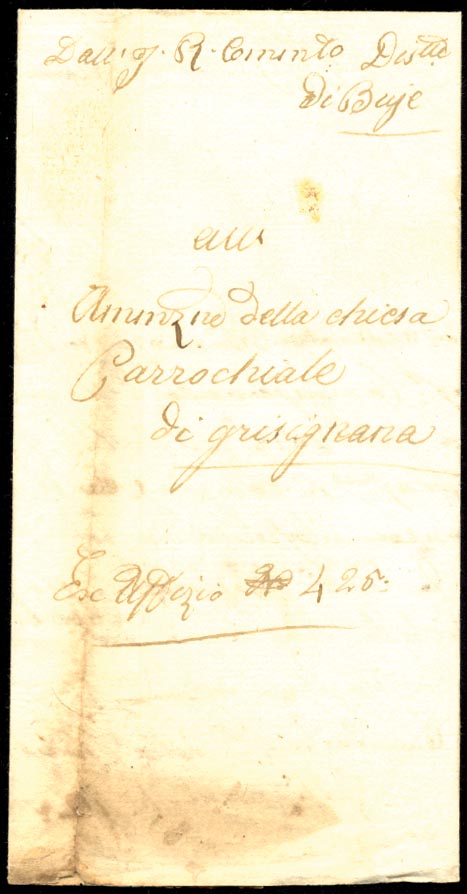 Dall' J. R. Commto Distle
di Buje
all'
Amminzne della chiesa
Parrochiale
di grisignana
Ex Uffizio No 425.